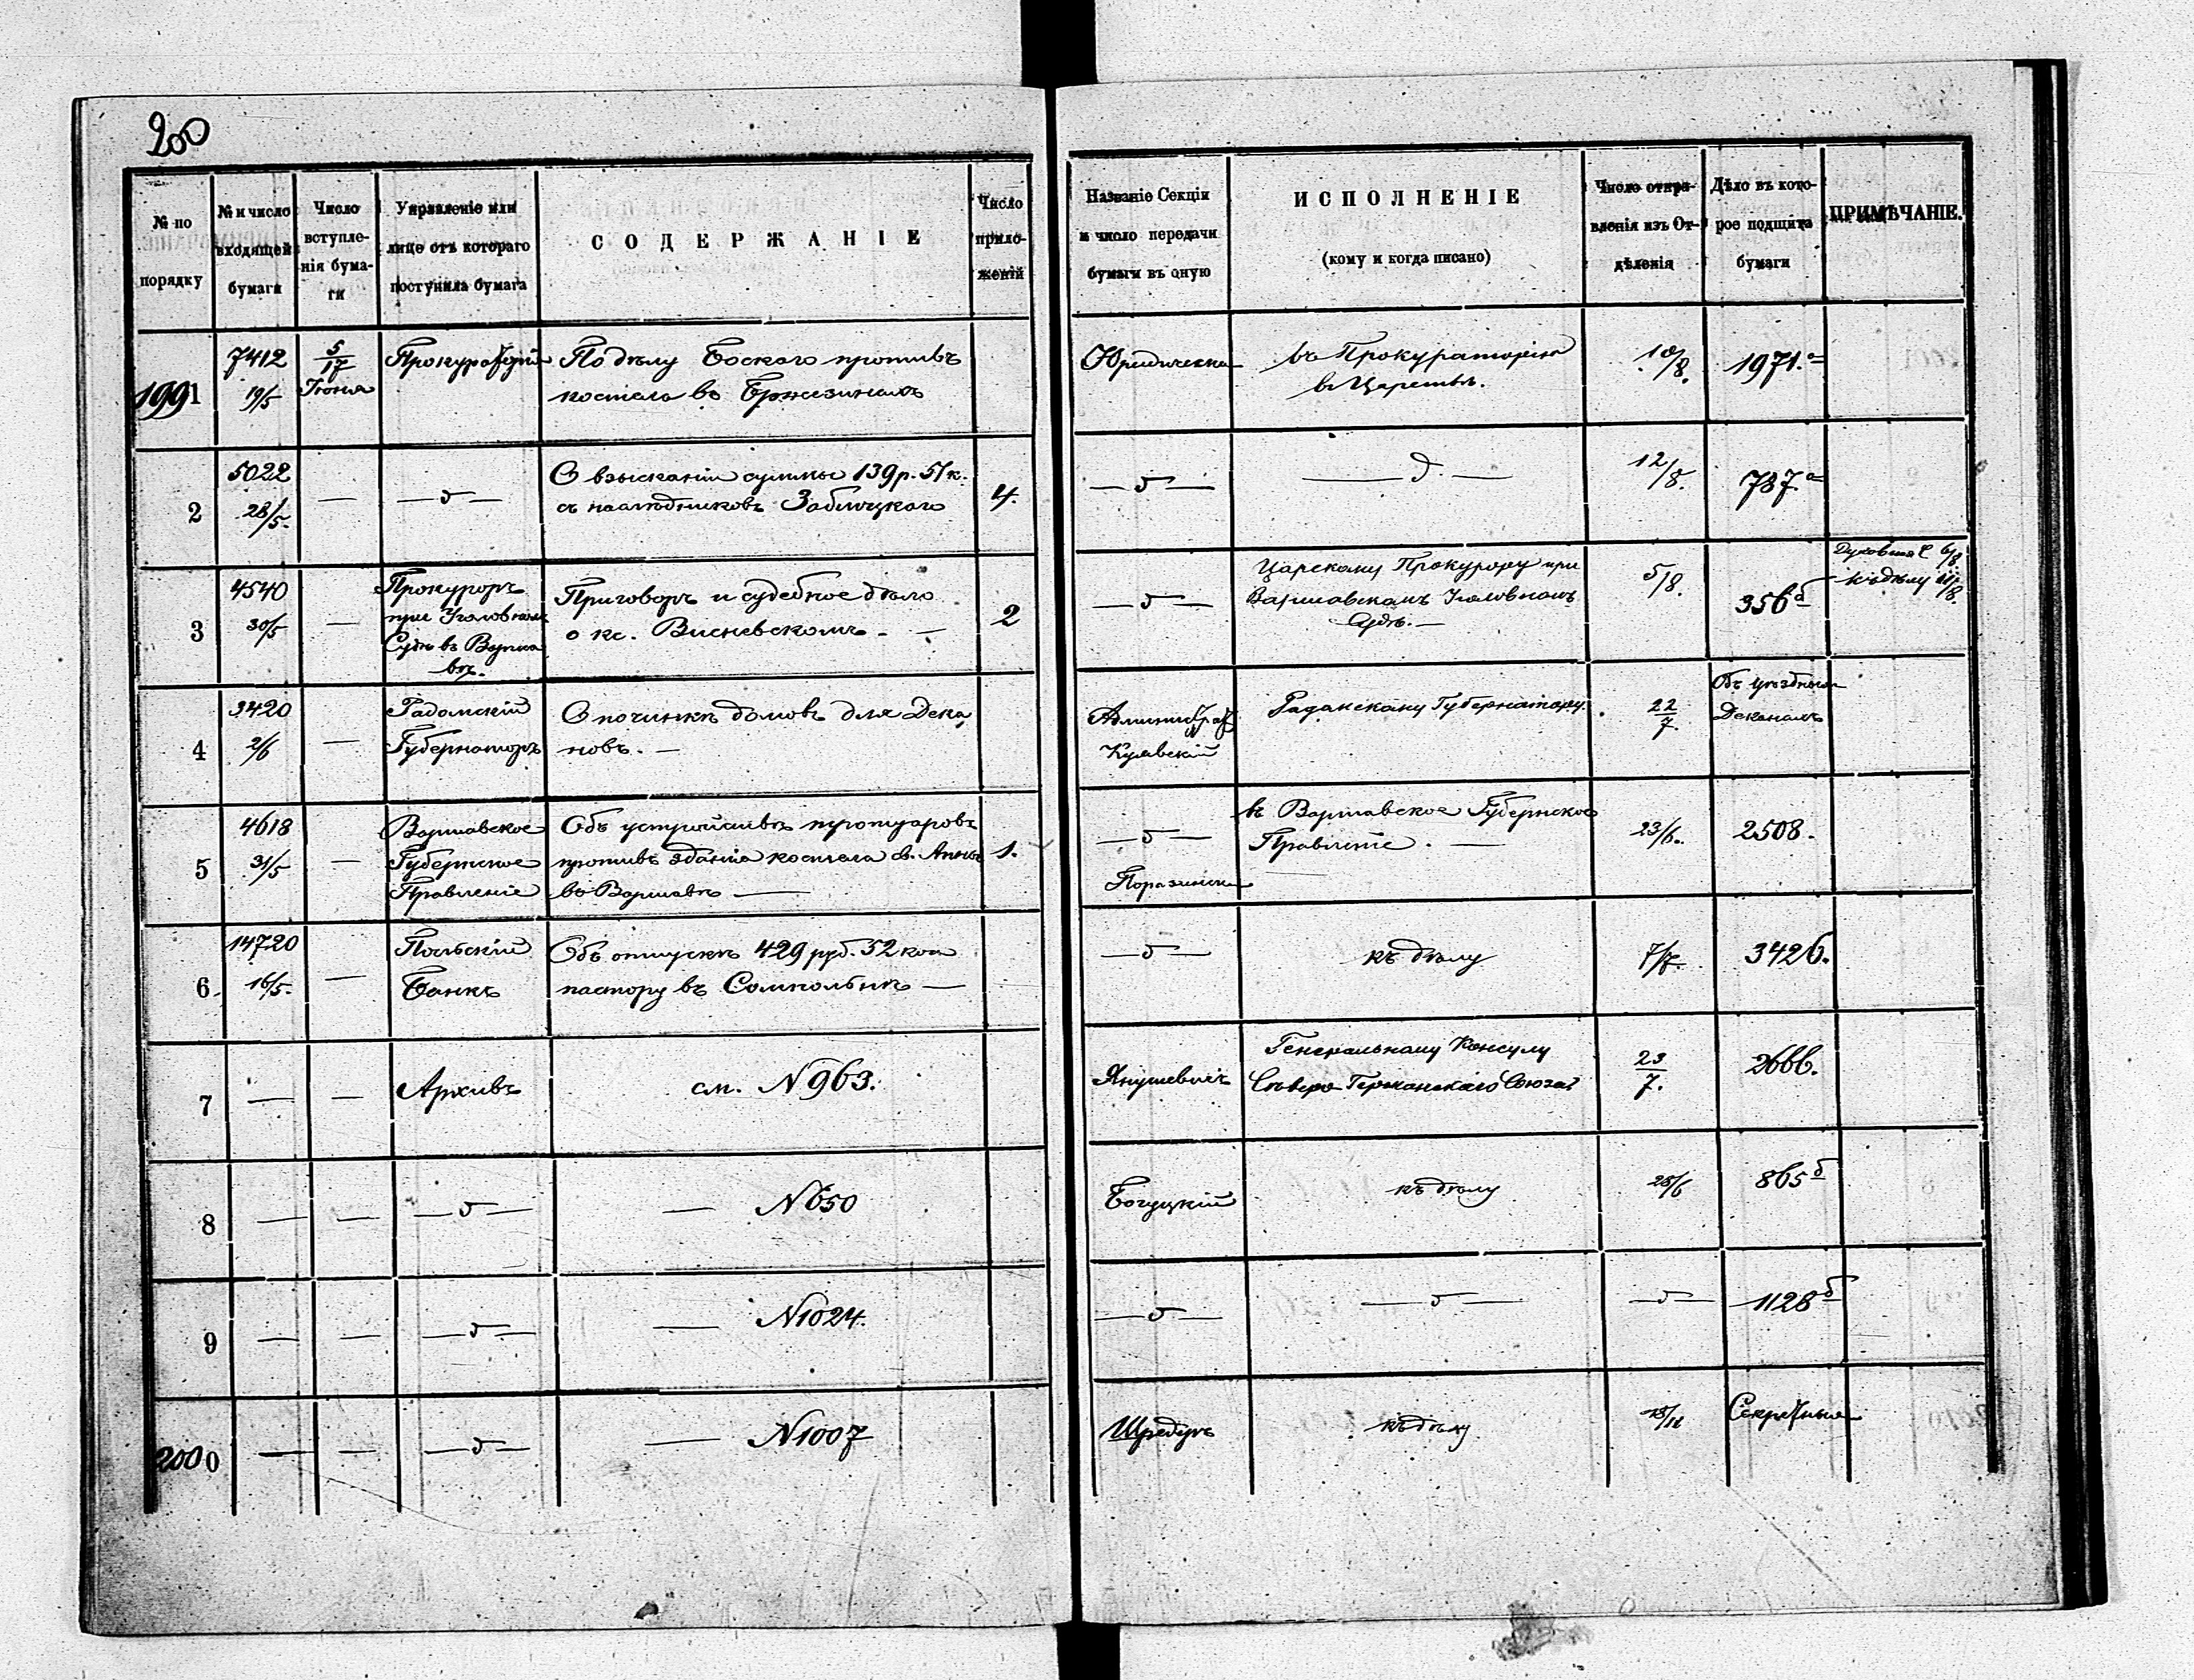 200
№ по порядку
№ и число входящей бумаги
Число вступленія бумаги
Управленіе или лице отъ котораго поступила бумага
СОДЕРЖАНІЕ
Число приложеній
Названіе Секціи и число передачи бумаги въ оную
ИСПОЛНЕНІЕ
(кому и когда писано)
Число отправленія изъ Отдѣленія
Дѣло въ которое подшита бумага
ПРИМѢЧАНІЕ.
1991
7412
19/5
5/17
Іюня
По дѣлу Боскаго противъ
костела въ Бржезинахъ
въ Прокураторію
въ Царствѣ.
10/8.
1971.а
2
5022
28/5.
— д —
О взысканіи суммы 139 р. 51 к.
съ наслѣдниковъ Заблоцкаго
4.
— д —
— д. —
12/8.
787.а
3
4540
30/5
—
Прокуроръ
при Уголовномъ
Судѣ въ Варша
вѣ.
Приговоръ и судебное дѣло
о кс. Висневскомъ. —
2
— д —
Царскому Прокурору при
Варшавскомъ Уголовномъ
Судѣ. —
5/8.
356 б
къ дѣлу
4
3420
2/6
—
Радомскій
Губернаторъ
О починкѣ домовъ для Дека
новъ. —
Куявскій
Радомскому Губернатору.
22/7.
Объ уѣздныхъ
Деканахъ
5
4618
31/5
—
Варшавское
Губернское
Правленіе
Объ устройствѣ тротуаровъ
противъ зданія костела св. Анны
въ Варшавѣ —
1.
— д —
въ Варшавское Губернское
Правленіе. —
23/6.
2508.
6.
14720
16/5.
—
Польскій
Банкъ
Объ отпускѣ 429 руб. 52 коп
пастору въ Сомпольнѣ —
— д —
къ дѣлу
7/7.
3426.
7
—
—
Архивъ
см. № 963.
Янушевичъ
Генеральному Консулу
Сѣверо-Германскаго Союза
23/7.
2666.
8
—
—
— д —
— № 650
Богуцкій
къ дѣлу
28/6
865 б
9
—
—
— д —
— № 1024.
— д —
— д —
— д —
1128 б
2000
—
—
— д —
— № 1007
Шредеръ
къ дѣлу